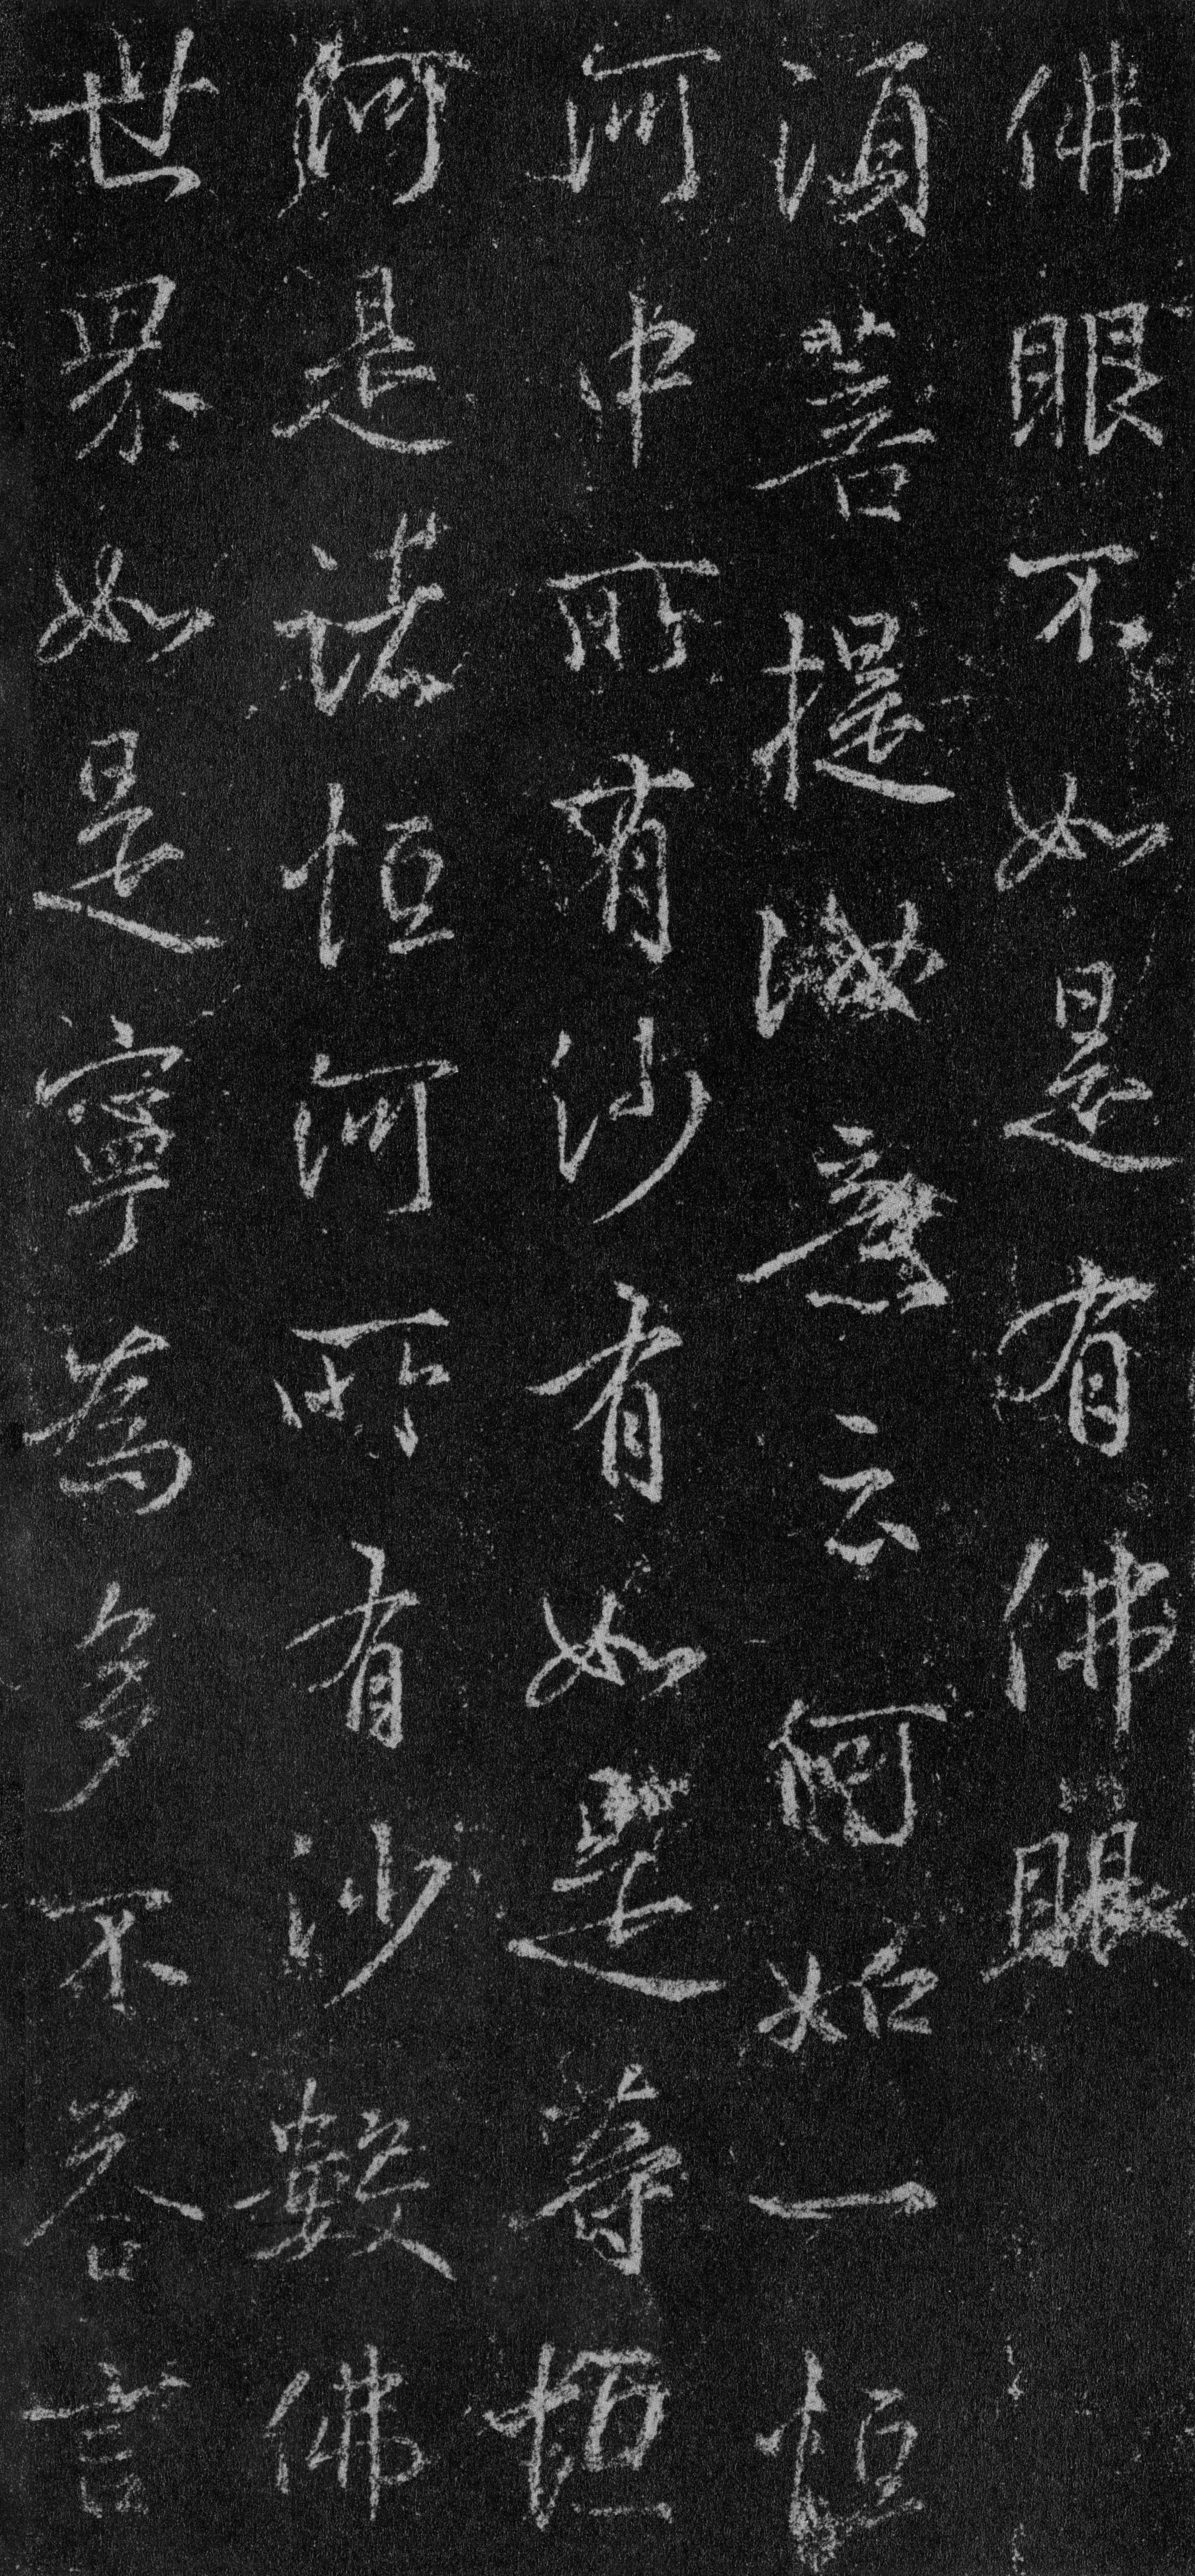 佛眼不如是有佛眼
須菩提於意云何如一恒
河中所有沙有如是等恒
河是諸恒河所有沙數佛
世界如是寧為多不答言